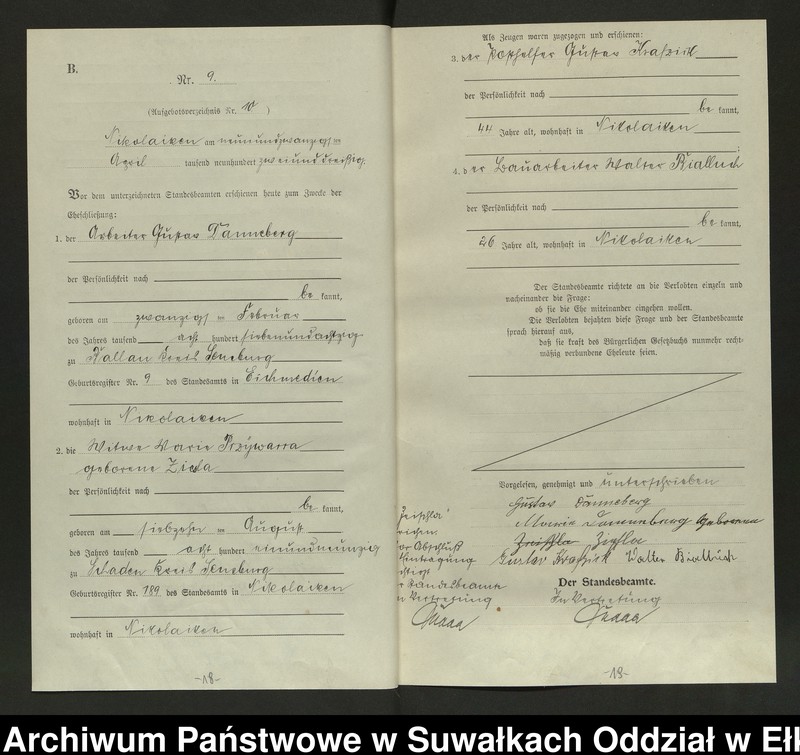 B.
Nr. 9.
(Aufgebotsverzeichnis Nr. 10 )
Nikolaiken am neunundzwanzigsten
April tausend neunhundert zweiunddreißig.
Vor dem unterzeichneten Standesbeamten erschienen heute zum Zwecke der
Eheschließung:
1. der Arbeiter Gustav Danneberg
der Persönlichkeit nach
be kannt,
geboren am zwanzigsten Februar
des Jahres tausend acht hundert siebenundachtzig
zu Kallau Kreis Sensburg
Geburtsregister Nr. 9 des Standesamts in Eichmedien
wohnhaft in Nikolaiken
2. die Witwe Marie Przywarra
geborene
der Persönlichkeit nach
be kannt,
geboren am siebzehn ten August
des Jahres tausend acht hundert neunundneunzig
zu Schaden Kreis Sensburg
Geburtsregister Nr. 189 des Standesamts in Nikolaiken
wohnhaft in Nikolaiken
-18-
Als Zeugen waren zugezogen und erschienen:
3. der Posthelfer Gustav
der Persönlichkeit nach
be kannt,
44 Jahre alt, wohnhaft in Nikolaiken
;
4. der Bauarbeiter Walter
der Persönlichkeit nach
be kannt,
26 Jahre alt, wohnhaft in Nikolaiken
Der Standesbeamte richtete an die Verlobten einzeln und
nacheinander die Frage:
ob sie die Ehe miteinander eingehen wollen.
Die Verlobten bejahten diese Frage und der Standesbeamte
sprach hierauf aus,
daß sie kraft des Bürgerlichen Gesetzbuchs nunmehr recht-
mäßig verbundene Eheleute seien.
Vorgelesen, genehmigt und unterschrieben
Gustav Danneberg
Marie Danneberg geborene
Gustav Walter
Der Standesbeamte.
In Vertretung
-18-
Archiwum Państwowe w Suwałkach Oddział w Eł